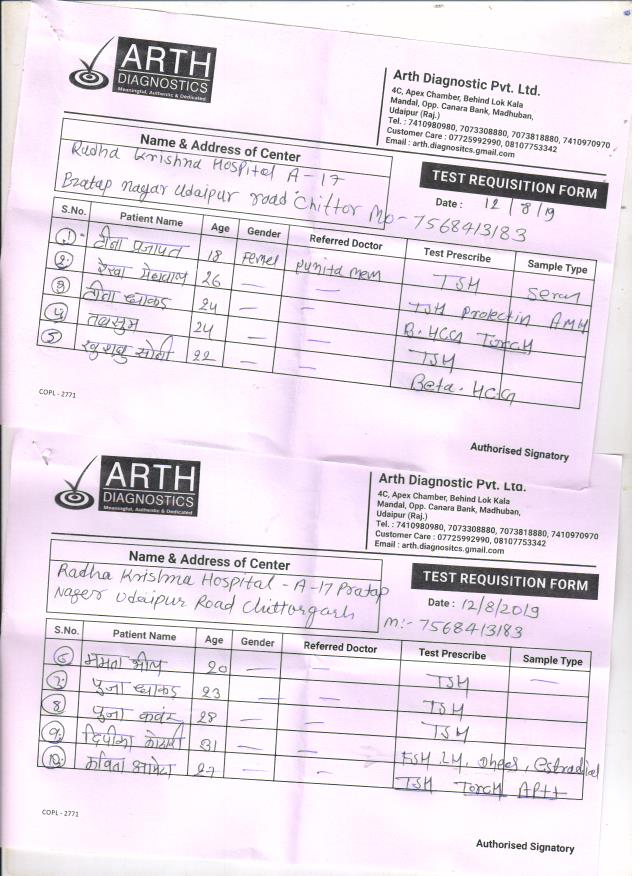 ARTH
DIAGNOSTICS
Meaningful, Authentic & Dedicated
Arth Diagnostic Pvt. Ltd.
4C, Apex Chamber, Behind Lok Kala
Mandal, Opp. Canara Bank, Madhuban,
Udaipur (Raj.)
Tel. : 7410980980, 7073308880, 7073818880, 7410970970
Customer Care : 07725992990, 08107753342
Email : arth.diagnositcs.gmail.com
Name & Address of Center
Radha Krishna Hospital A-17
Pratap nagar Udaipur road Chittor Mo- 7568413183
TEST REQUISITION FORM
Date : 12/8/19
S.No. Patient Name Age Gender Referred Doctor Test Prescribe Sample Type
1. 18 Femel punita mem TSH
2. रेखा 26 — — TSH Prolectin AMH
3 24 — — B. HCG Torch
4 तबसुम 24 — — TSH
5 खुशबु सोनी 22 — — Beta. HCG
COPL - 2771
Authorised Signatory
ARTH
DIAGNOSTICS
Meaningful, Authentic & Dedicated
Arth Diagnostic Pvt. Ltd.
4C, Apex Chamber, Behind Lok Kala
Mandal, Opp. Canara Bank, Madhuban,
Udaipur (Raj.)
Tel. : 7410980980, 7073308880, 7073818880, 7410970970
Customer Care : 07725992990, 08107753342
Email : arth.diagnositcs.gmail.com
Name & Address of Center
Radha Krishna Hospital - A-17 Pratap
Nager Udaipur Road Chittorgarh
TEST REQUISITION FORM
Date : 12/8/2019
m:- 7568413183
S.No. Patient Name Age Gender Referred Doctor Test Prescribe Sample Type
6 ममता भील 20 — — TSH —
7 पुजा 23 — — TSH
8 पुजा कवंर 28 — — TSH
9. 31 — — FSH LH, Dheas, Estradiol
10. 27 — — TSH Torch
COPL - 2771
Authorised Signatory